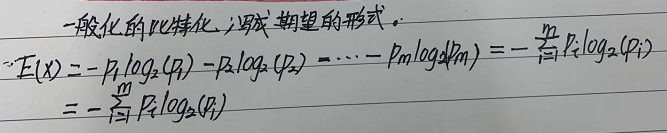 一般化的比特化,写成期望的形式.
∴E(X) = -p₁log₂(p₁) - p₂log₂(p₂) - ⋯ - pₘlog₂(pₘ) = -∑ᵢ₌₁ᵐ pᵢlog₂(pᵢ)
= -∑ᵢ₌₁ᵐ pᵢlog₂(pᵢ)